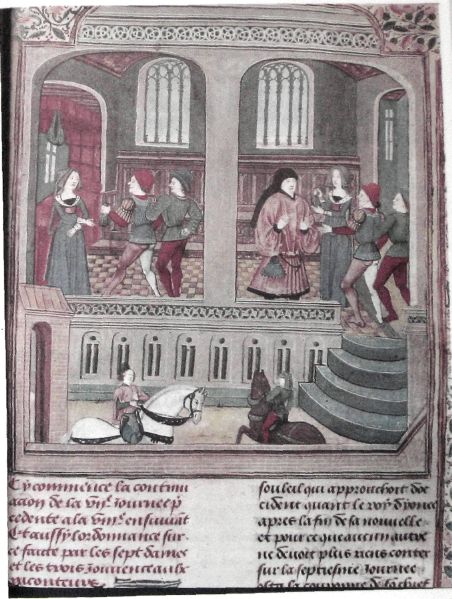 Cy commence la continu
acion de la viii.e journee p
cedente a la viii.e ensuivant
Et aussy lordonnance sur
ce faite par les sept dames
et les trois Jouvenceaulx
raconteurs
souleil qui approuchoit doc
cident quant le roy dyonee
apres la fin de sa nouvelle
et pour ce que aucun autre
ne devoit plus riens conter
sur la septiesme Journee
osta la couronne de chief